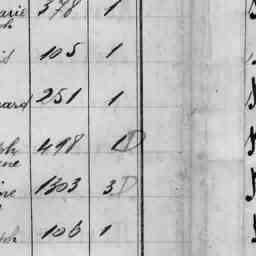 arie 378 1
ph
is 105 1
ard 251 1
ph 498 1 D
ne
ine 1303 3 D
ph 106 1